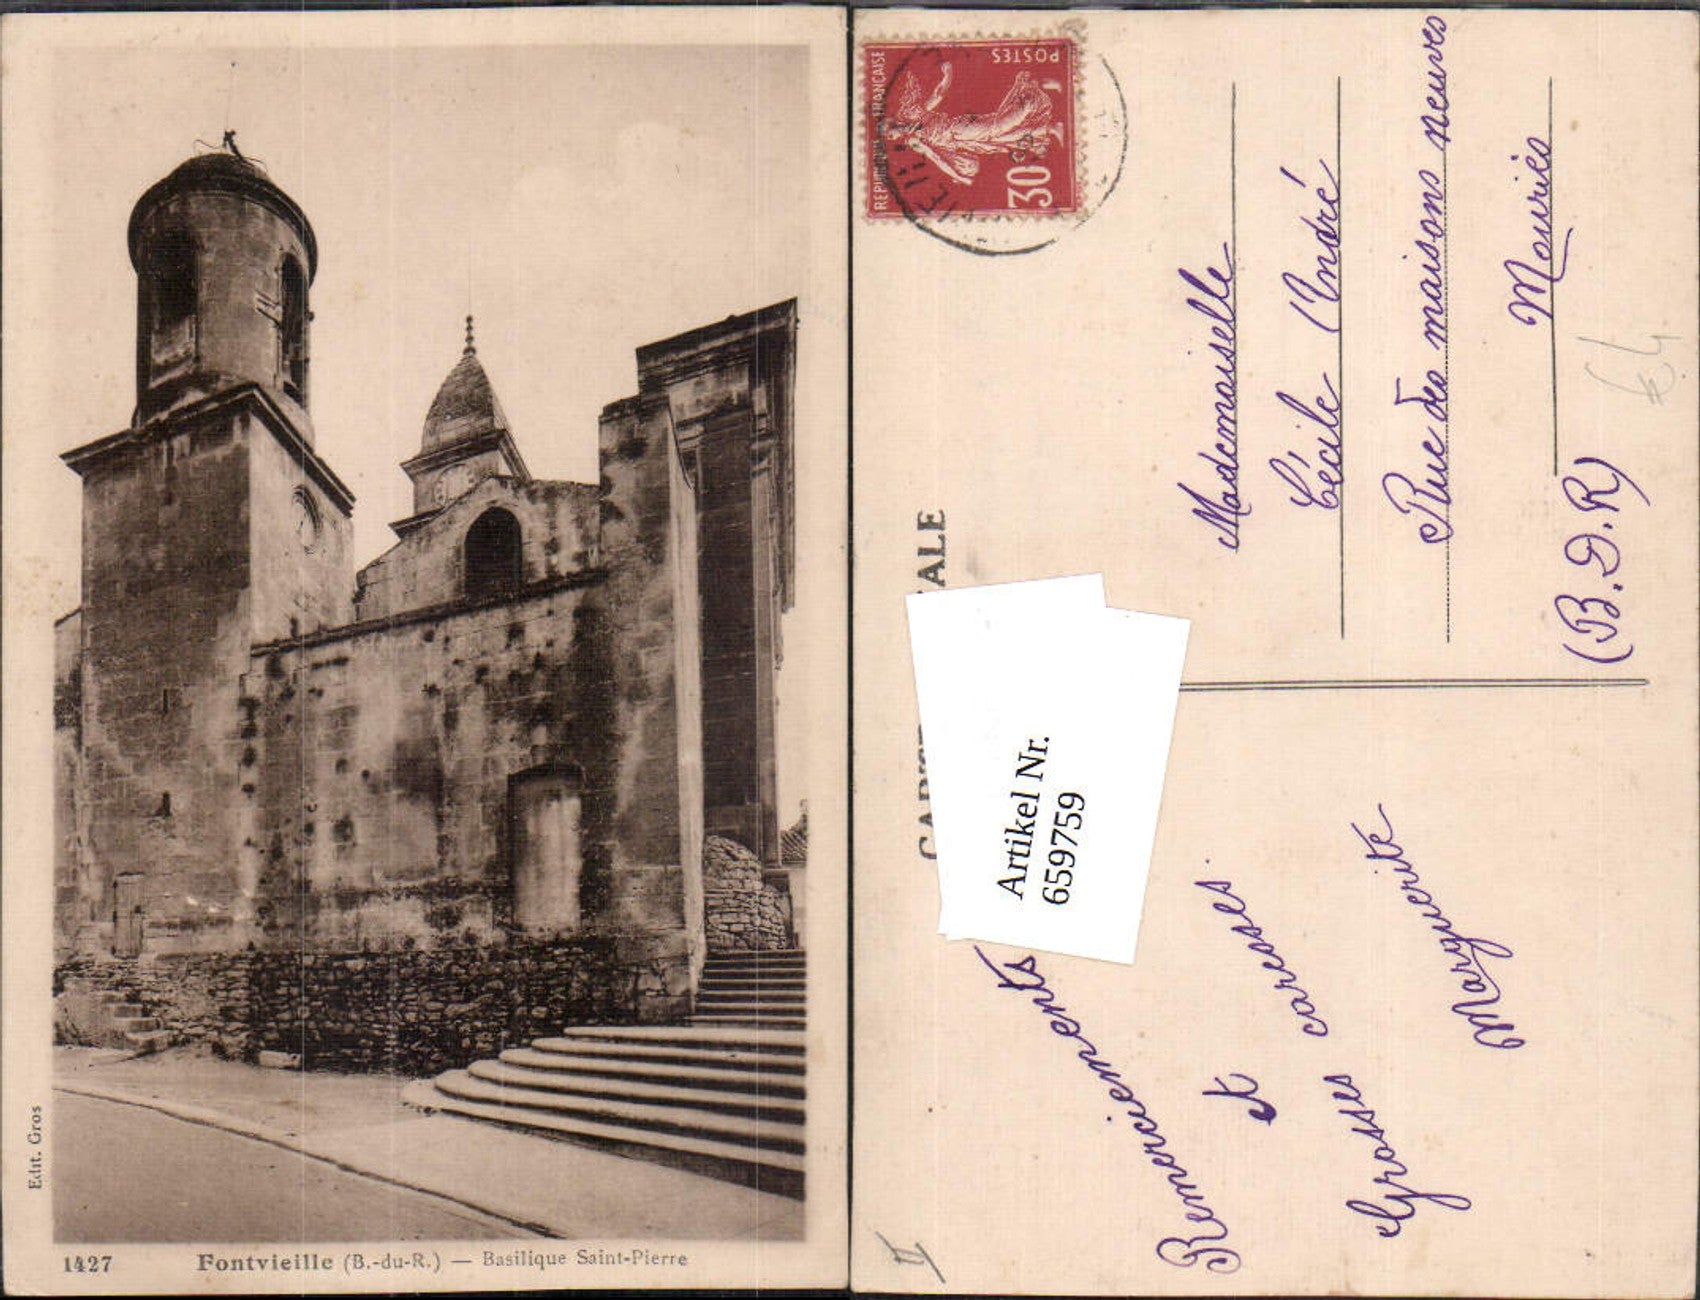 Edit. Gros
1427 Fontvieille (B.-du-R.) — Basilique Saint-Pierre
REPUBLIQUE FRANÇAISE
POSTES
30
Artikel Nr.
6597759
Remerciements
et
Grosses caresses.
Marguerite
Mademoiselle
Cécile André
Rue des maisons neuves
Mouriès
(B.D.R)